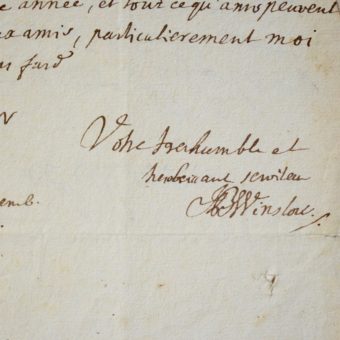 e année, et tout ce qu'amis peuvent
a amis, particulierement moi
fard
N
Votre treshumble et
tresobeissant serviteur
Winslow.
emb.